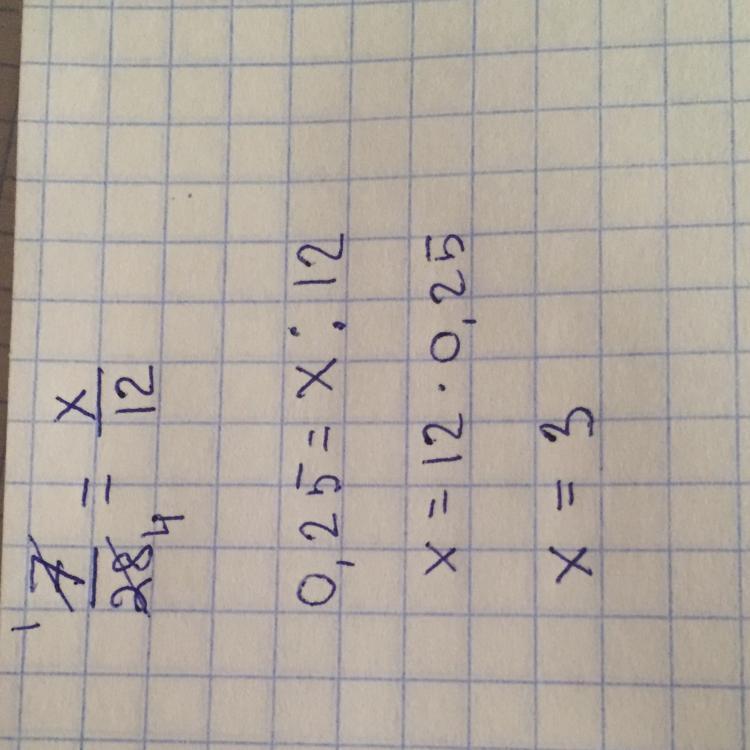 ¹7/28₄ = x/12
0,25 = x : 12
x = 12 · 0,25
x = 3